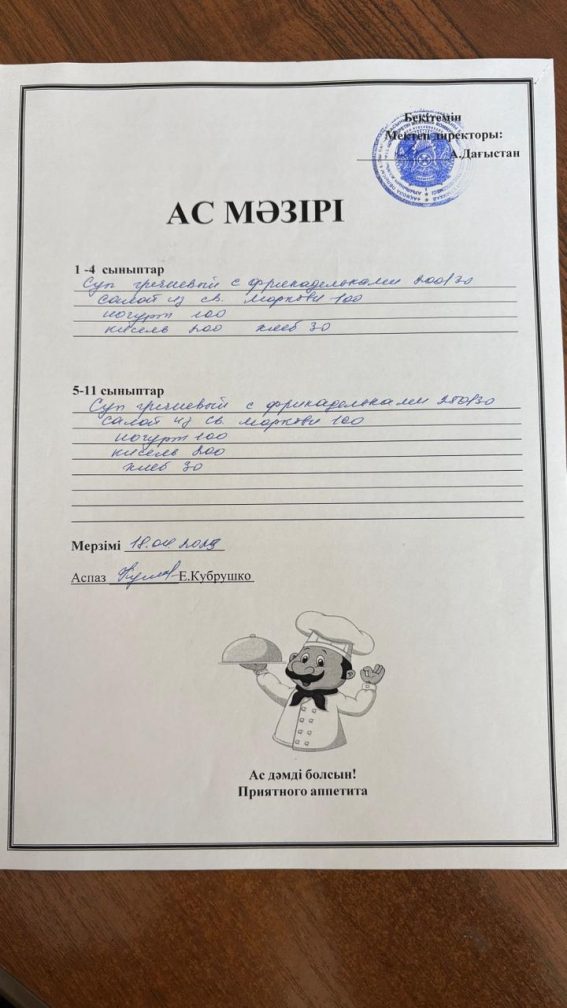 Бекітемін
Мектеп директоры:
А.Дағыстан
АС МӘЗІРІ
1 -4 сыныптар
Суп гречневый с фрикадельками 200/30
салат из св. моркови 100
йогурт 100
кисель 200 хлеб 30
5-11 сыныптар
Суп гречневый с фрикадельками 250/30
салат из св. моркови 100
йогурт 100
кисель 200
хлеб 30
Мерзімі 18.04.2023
Аспаз Е.Кубрушко
Ас дәмді болсын!
Приятного аппетита